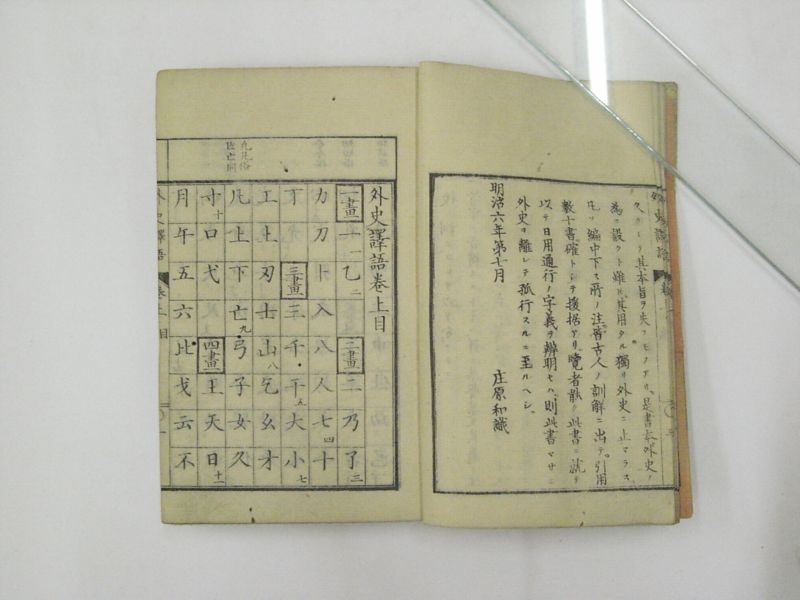 ヲクシク其本旨ヲ失フモノアリ、是書本外史ノ
為ニ設クト雖ヒ其用タル獨リ外史ニ止マラス
凡ソ編中下ス所ノ注皆古人ノ訓解ニ出テ引用
數十書確トシテ援据アリ覽者能ク此書ニ就テ
以テ日用通行ノ字義ヲ辨明セハ、則此書マサニ
外史ヲ離レテ孤行スルニ至ルヘシ、
明治六年第七月
庄原和識
外史譯語卷上目
一畫 一 乙 二 二畫 二 乃 了 三
力 刀 卜 入 八 人 七 四 十
丁 三畫 三 千 干 五 大 小 七
工 土 刃 士 山 八 乞 幺 才
凡 上 下 亡 九 弓 子 女 久
寸 十 口 弋 四畫 王 天 日 十一
月 午 五 六 比 戈 云 不
外史譯語